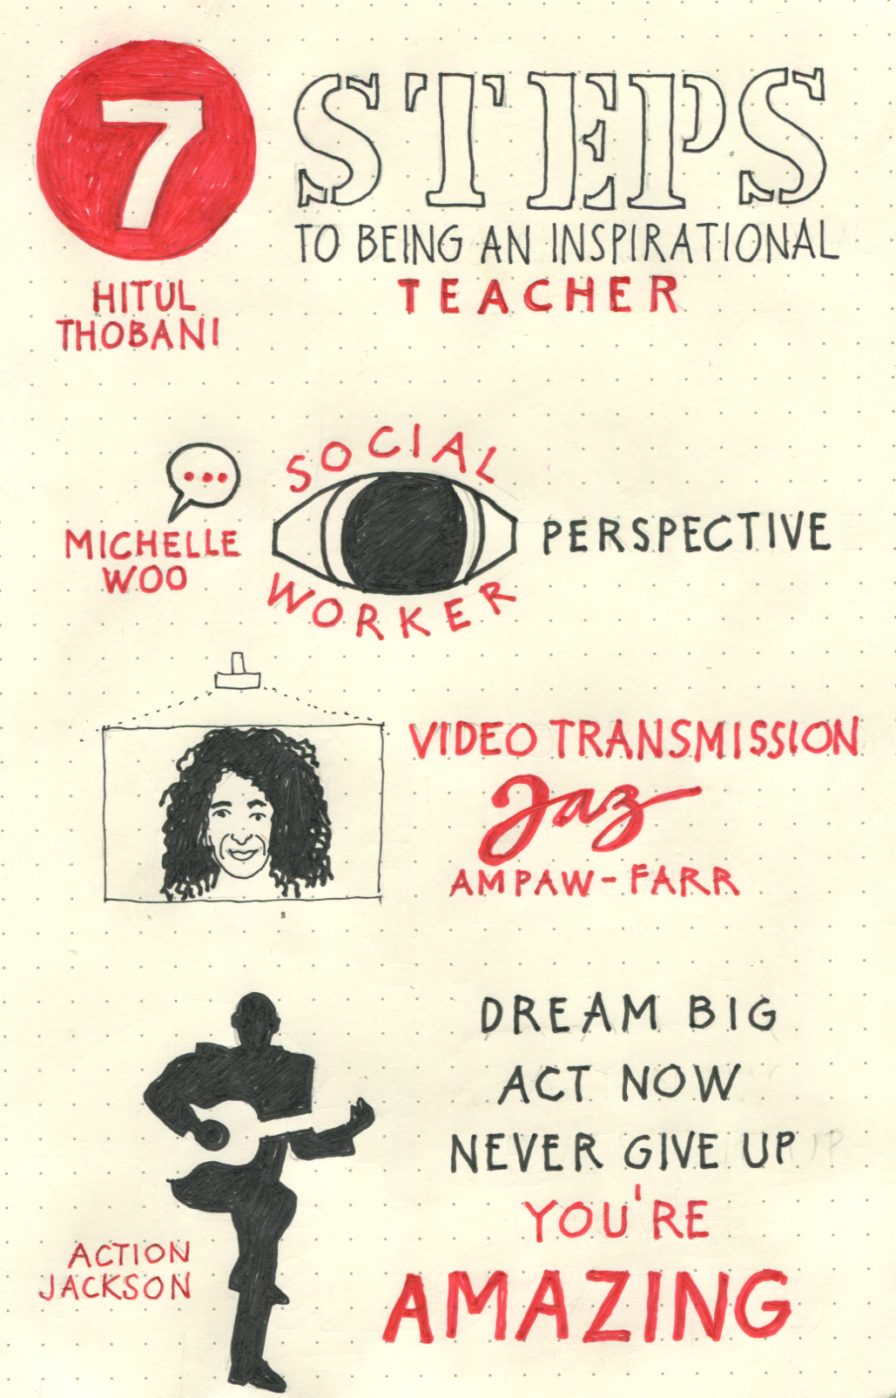 7
STEPS
TO BEING AN INSPIRATIONAL
TEACHER
HITUL
THOBANI
SOCIAL
MICHELLE
WOO
PERSPECTIVE
WORKER
VIDEO TRANSMISSION
Jaz
AMPAW-FARR
DREAM BIG
ACT NOW
NEVER GIVE UP
YOU'RE
AMAZING
ACTION
JACKSON